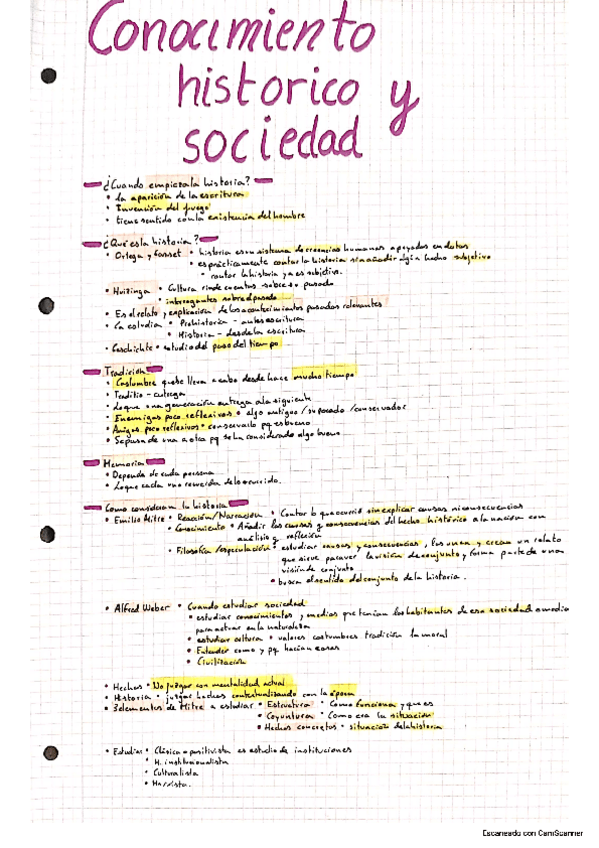 Conocimiento
historico y
sociedad
¿Cuando empieza la historia?
• La aparición de la escritura
• Invención del fuego
• tiene sentido con la existencia del hombre
¿Qué es la historia?
• Ortega y Gasset • historia es un sistema de creencias humanas apoyadas en datos
• es prácticamente contar la historia sin añadir algún hecho subjetivo
• contar la historia ya es subjetivo.
• Huizinga • Cultura rinde cuentas sobre su pasado
• interrogantes sobre el pasado
• Es el relato y explicación de los acontecimientos pasados relevantes
• La estudia • Prehistoria - antes escritura
• Historia - desde la escritura
• Geschichte • estudio del paso del tiempo
Tradición
• Costumbre que se lleva a cabo desde hace mucho tiempo
• Traditio - entrega
• Lo que una generación entrega a la siguiente
• Enemigos poco reflexivos • algo antiguo / superado / conservador
• Amigos poco reflexivos • conservarlo pq es bueno
• Se pasa de una a otra pq se ha considerado algo bueno
Memoria
• Depende de cada persona
• Lo que cada uno recuerda de lo ocurrido.
Como consideran la historia
• Emilio Mitre • Reacción/Narración • Contar lo que ocurrió sin explicar causas ni consecuencias
• Conocimiento • Añadir las causas y consecuencias del hecho histórico a la narración con
análisis y reflexión
• Filosofía/especulación • estudiar causas y consecuencias, las unen y crean un relato
que sirve para ver la visión de conjunto y forma parte de una
visión de conjunto
• busca el sentido del conjunto de la historia.
• Alfred Weber • Cuando estudiar sociedad
• estudiar conocimientos y medios que tenían los habitantes de esa sociedad
para actuar en la naturaleza
• estudiar cultura • valores costumbres tradición la moral
• Entender como y pq hacían cosas
• Civilización
• Hechos • No juzgar con mentalidad actual
• Historia • juzgar hechos contextualizando con la época
• 3 elementos de Mitre a estudiar • Estructura • Como funciona y que es
• Coyuntura • Como era la situación
• Hechos concretos • situación de la historia
• Estudios • Clásica o positivista es estudio de instituciones
• H. institucionalista
• Culturalista
• Marxista.
Escaneado con CamScanner